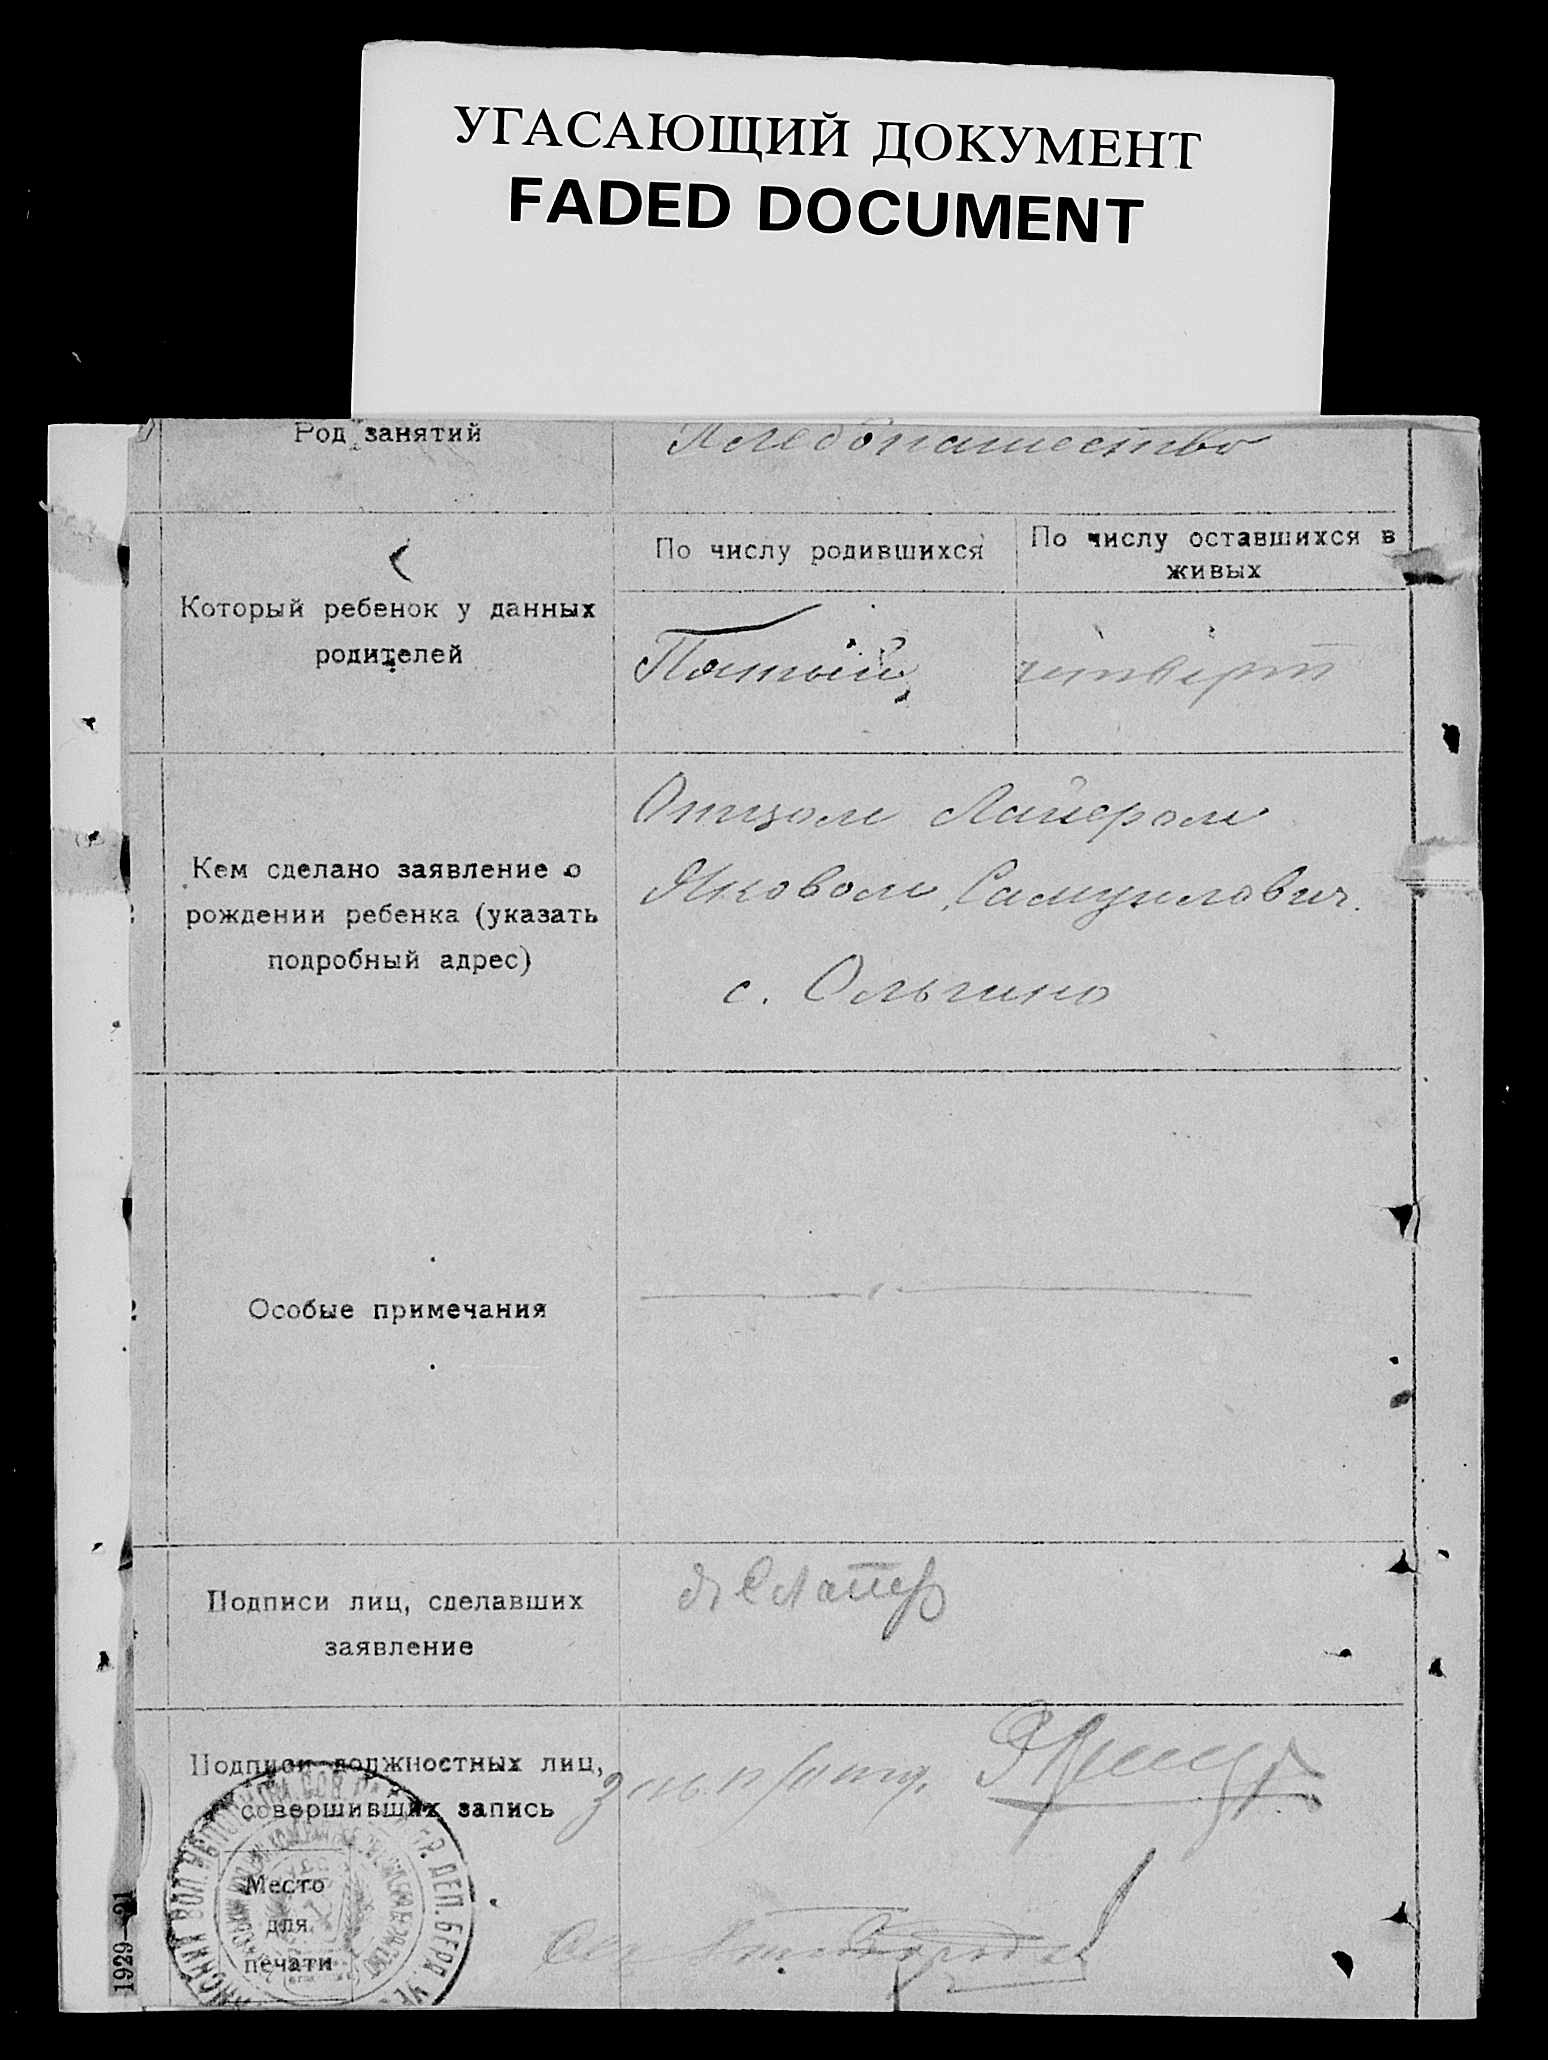 УГАСАЮЩИЙ ДОКУМЕНТ
FADED DOCUMENT
Род занятий
Хлебопашество
По числу родившихся
По числу оставшихся в
живых
Который ребенок у данных
родителей
Пятый
четверт
Кем сделано заявление о
рождении ребенка (указать
подробный адрес)
Отцом Лайером
Яковом Самуилович.
с. Ольгино
Особые примечания
Подписи лиц, сделавших
заявление
Я С Лайер
Подписи должностных лиц,
совершивших запись
Место
для
печати
1929—21